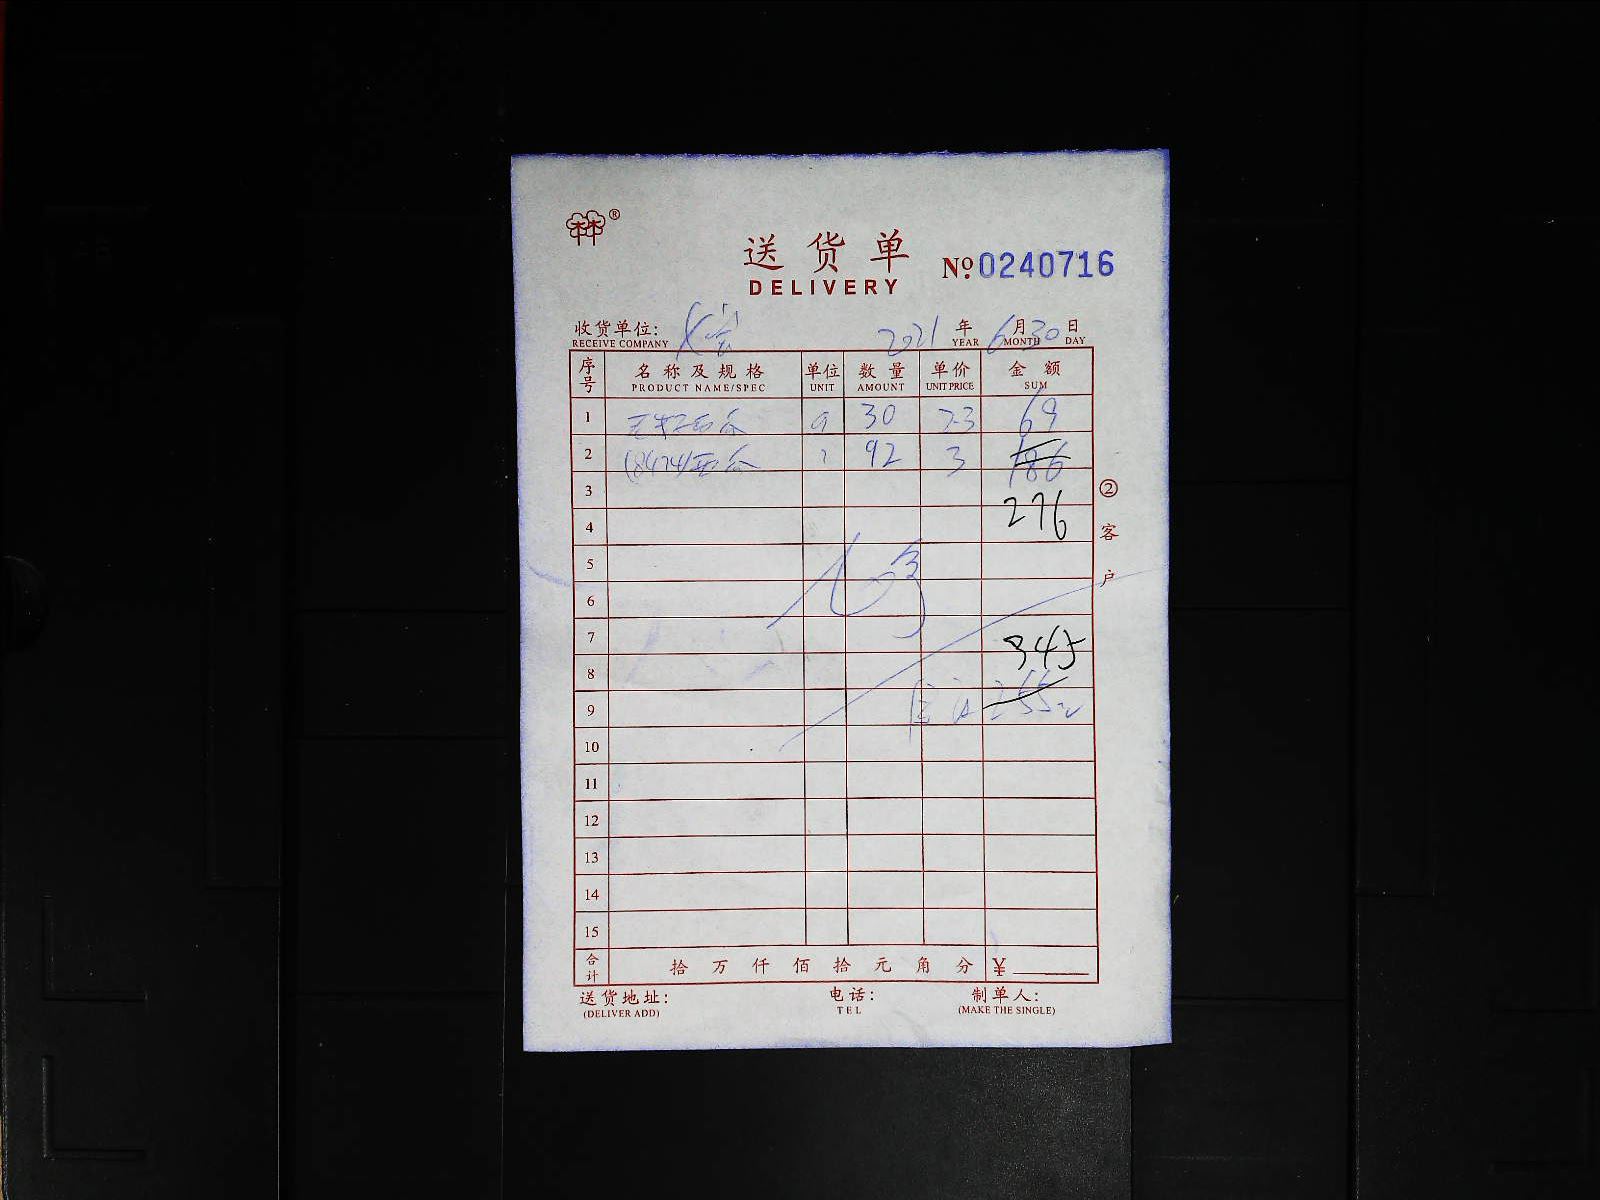 ®
送货单
DELIVERY
№ 0240716
收货单位:
RECEIVE COMPANY
2021 年 6 月 30 日
YEAR MONTH DAY
序号 名称及规格 单位 数量 单价 金额
PRODUCT NAME/SPEC UNIT AMOUNT UNIT PRICE SUM
1 西瓜 30 2.3 69
2 (8424)西瓜 92 3 186
3
276
4
5
6
7 345
8
9 255元
10
11
12
13
14
15
合计 拾 万 仟 佰 拾 元 角 分 ¥
② 客户
送货地址: 电话: 制单人:
(DELIVER ADD) TEL (MAKE THE SINGLE)